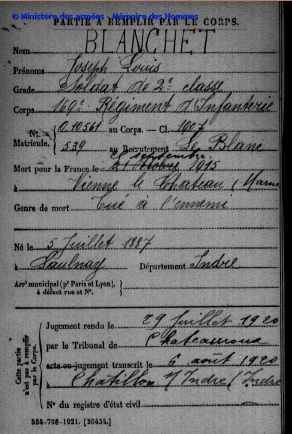 © Ministère des armées - Mémoire des Hommes
PARTIE À REMPLIR PAR LE CORPS.
Nom BLANCHET
Prénoms Joseph Louis
Grade Soldat de 2e classe
Corps 169e Régiment d'Infanterie
N° 010561 au Corps. — Cl. 1907
Matricule. 539 au Recrutement Le Blanc
septembre
Mort pour la France le 21 octobre 1915
à Vienne le Chateau (Marne
Genre de mort Tué à l'ennemi
Né le 5 Juillet 1887
à Saulnay Département Indre
Arrt municipal (pr Paris et Lyon),
à défaut rue et N°.
Cette partie n'est pas à remplir par le Corps.
Jugement rendu le 29 Juillet 1920
par le Tribunal de Chateauroux
acte ou jugement transcrit le 6 août 1920
à Chatillon s/ Indre (Indre
N° du registre d'état civil
534-708-1921. [26434.]